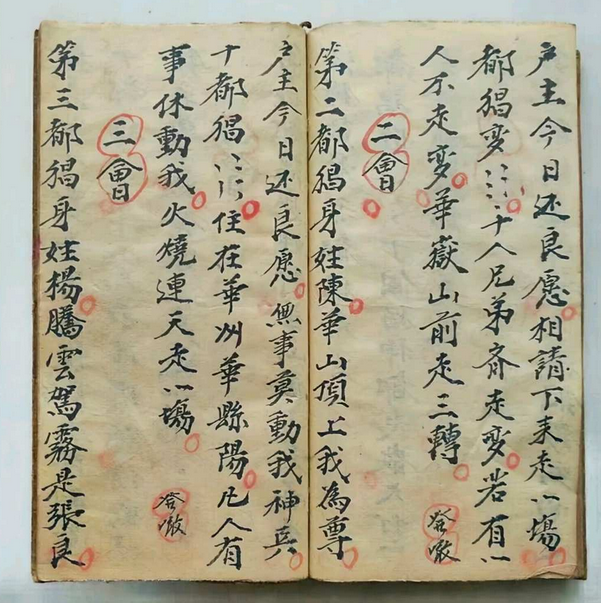 户主今日还良愿相請下来走一塲
都猖变〻〻十人兄弟齐走变若有一
人不走变華嶽山前走三轉
二會
第二都猖身姓陳華山頂上我為尊
户主今日还良愿無事莫動我神兵
十都猖〻〻住在華州華縣陽凡人有
事休動我火燒連天走一塲
三會
第三都猖身姓楊騰雲駕霧是張良